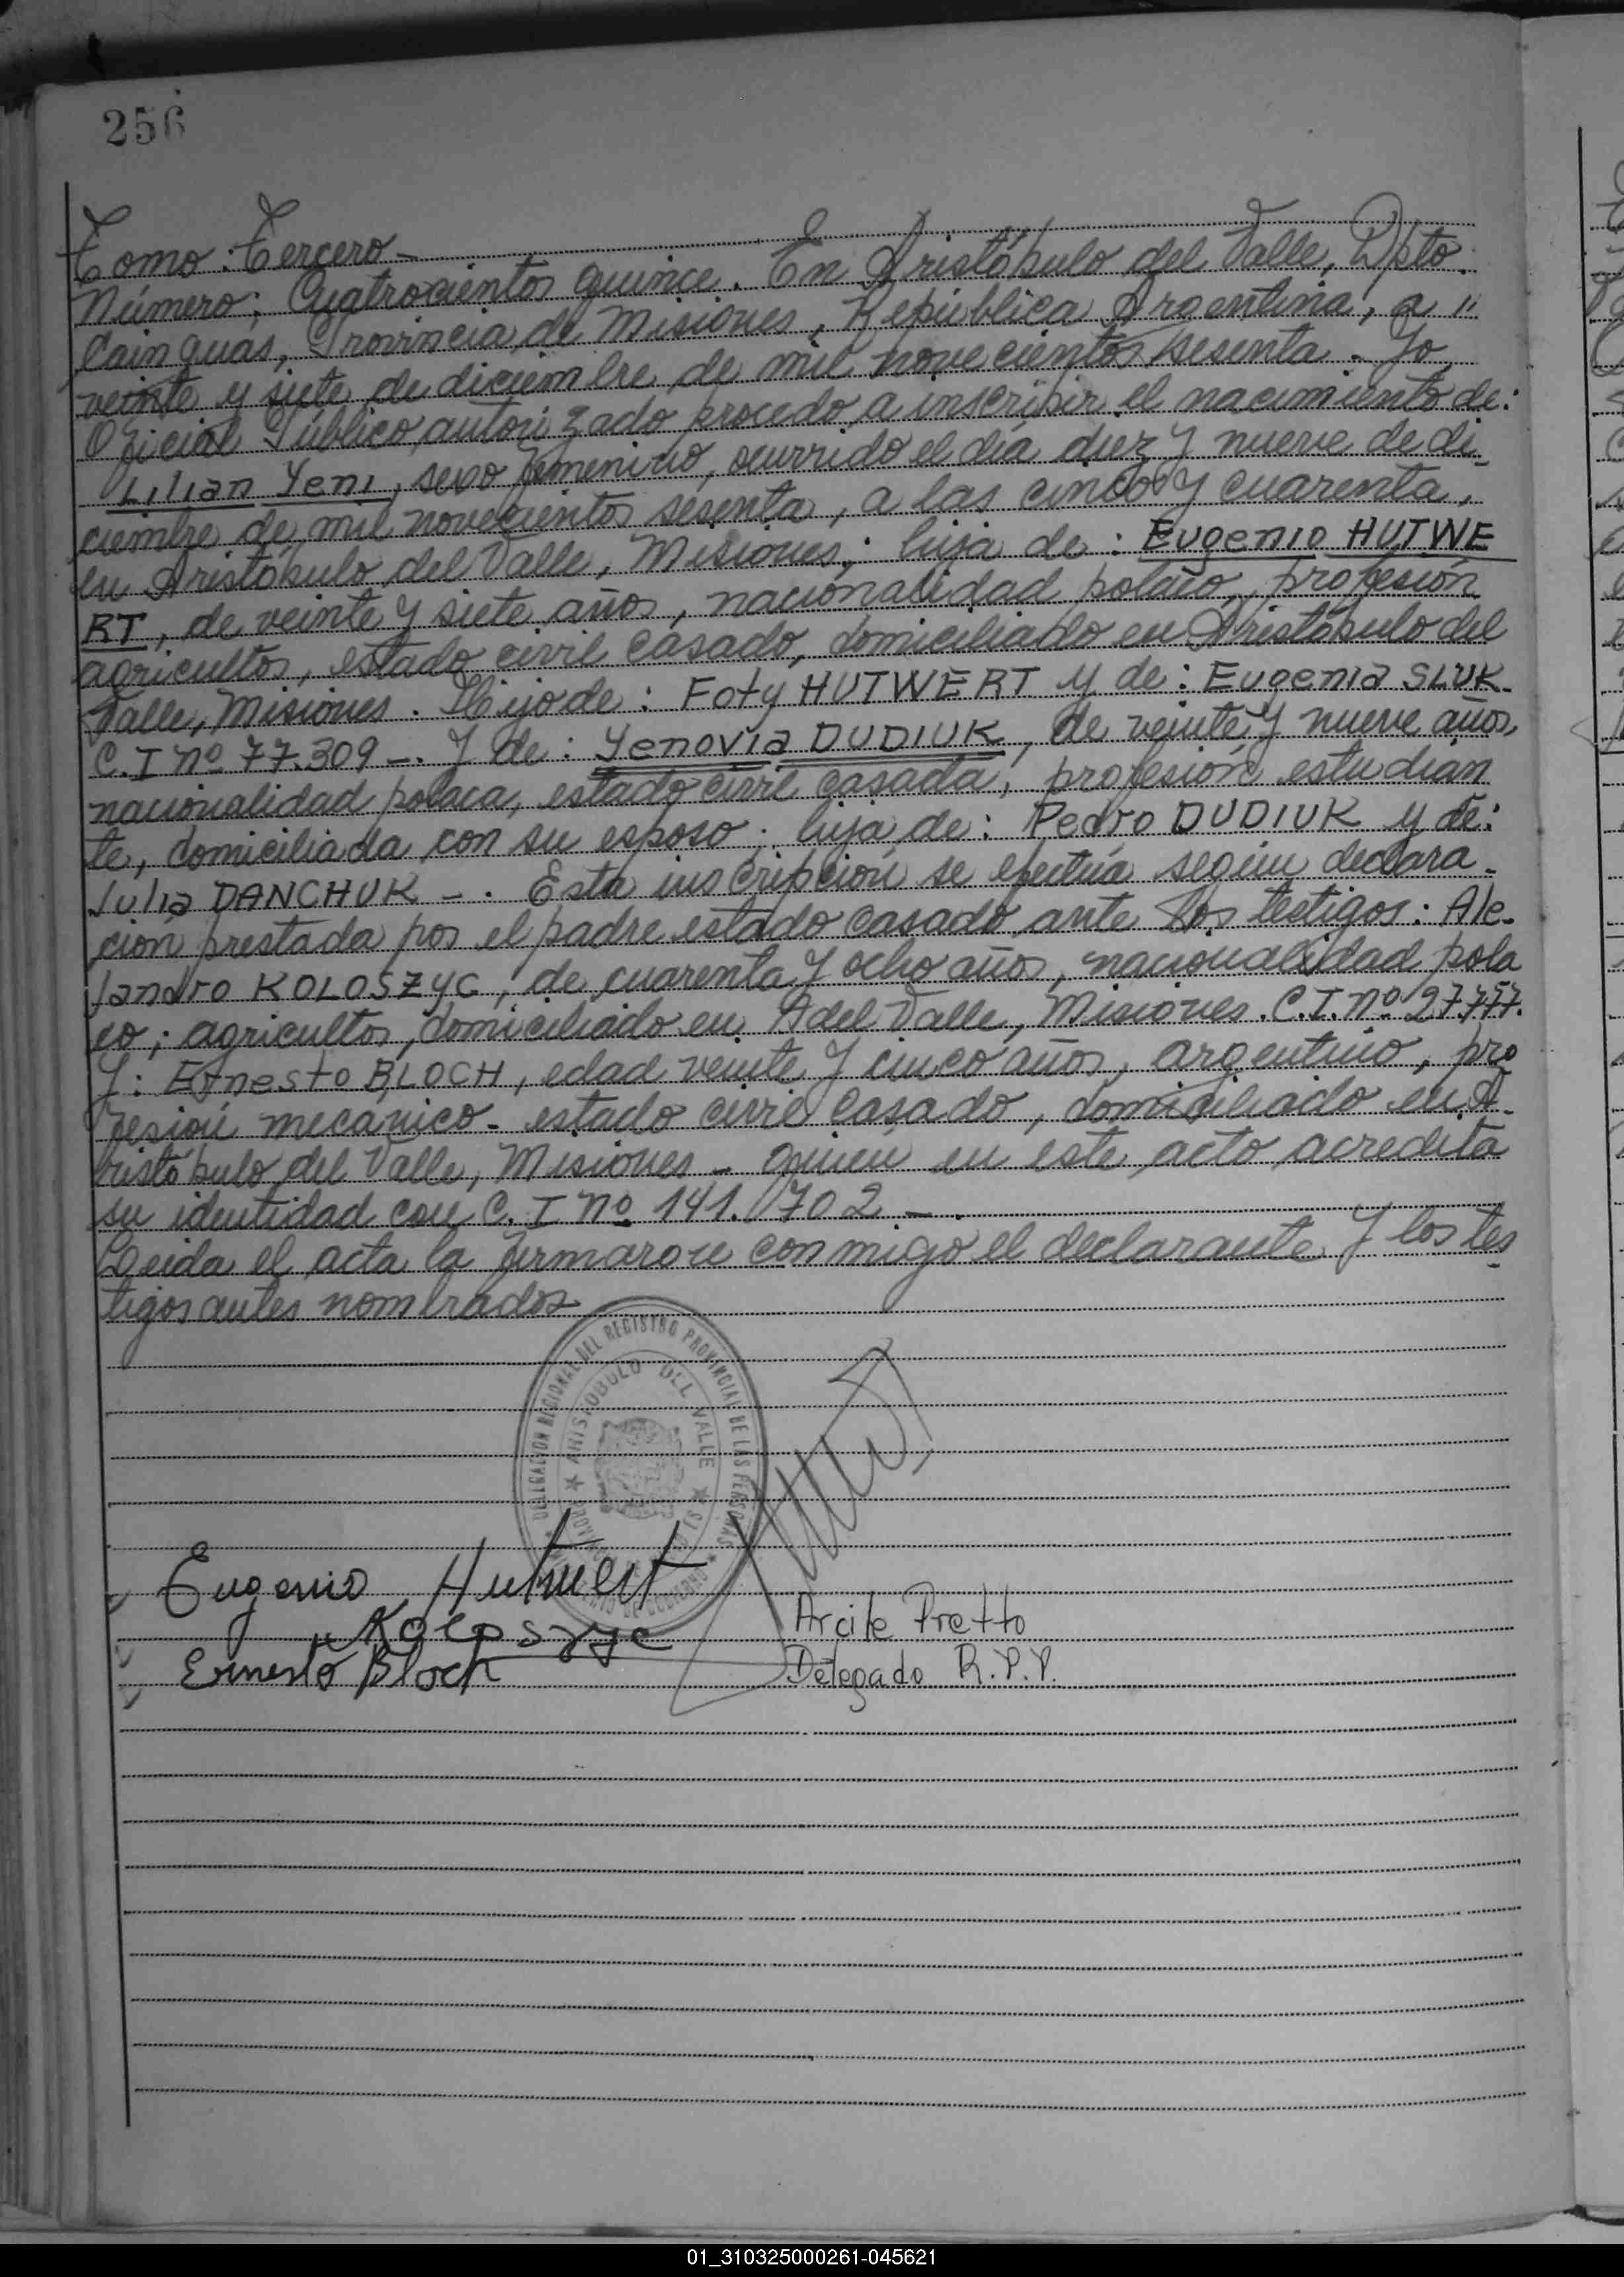 256
Tomo: Tercero -
Número; Cuatrocientos quince. En Aristóbulo del Valle, Dpto.
Cainguas, Provincia de Misiones, República Argentina, a "
veinte y siete de diciembre de mil novecientos sesenta. Yo
Oficial Público, autorizado procedo a inscribir el nacimiento de:
Lilian Yeni, sexo femenino, ocurrido el día diez y nueve de di-
ciembre de mil novecientos sesenta, a las cinco y cuarenta,
en Aristóbulo del Valle, Misiones; hija de: Eugenio HUTWE
RT, de veinte y siete años, nacionalidad polaco, profesión
agricultor, estado civil casado, domiciliado en Aristóbulo del
Valle, Misiones. Hijo de: Foty HUTWERT y de: Eugenia SLUK-
C.I nº 77.309 -. Y de: Yenovia DUDIUK, de veinte y nueve años,
nacionalidad polaca, estado civil casada, profesión estudian
te, domiciliada con su esposo. hija de: Pedro DUDIUK y de:
Julia DANCHUK -. Esta inscripción se efectúa según declara-
ción prestada por el padre estado casado ante los testigos: Ale-
jandro KOLOSZYC, de cuarenta y ocho años, nacionalidad pola
co; agricultor, domiciliado en A del Valle, Misiones. C.I. nº
Y: Ernesto BLOCH, edad veinte y cinco años, argentino, pro
fesión mecanico - estado civil casado, domiciliado en A-
ristóbulo del Valle, Misiones - quien en este acto acredita
su identidad con C. I nº 141.702 -.
Leida el acta la firmaron conmigo el declarante y los tes
tigos antes nombrados
DELEGACION REGIONAL DEL REGISTRO PROVINCIAL DE LAS PERSONAS
ARISTOBULO DEL VALLE
MINISTERIO DE GOBIERNO
Eugenio Hutwert
Koloszyc
Arcile Pretto
Ernesto Bloch
Delegado R.P.P.
01_310325000261-045621